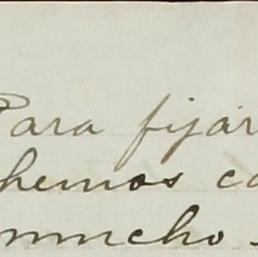 Para fijar
hemos co
mucho